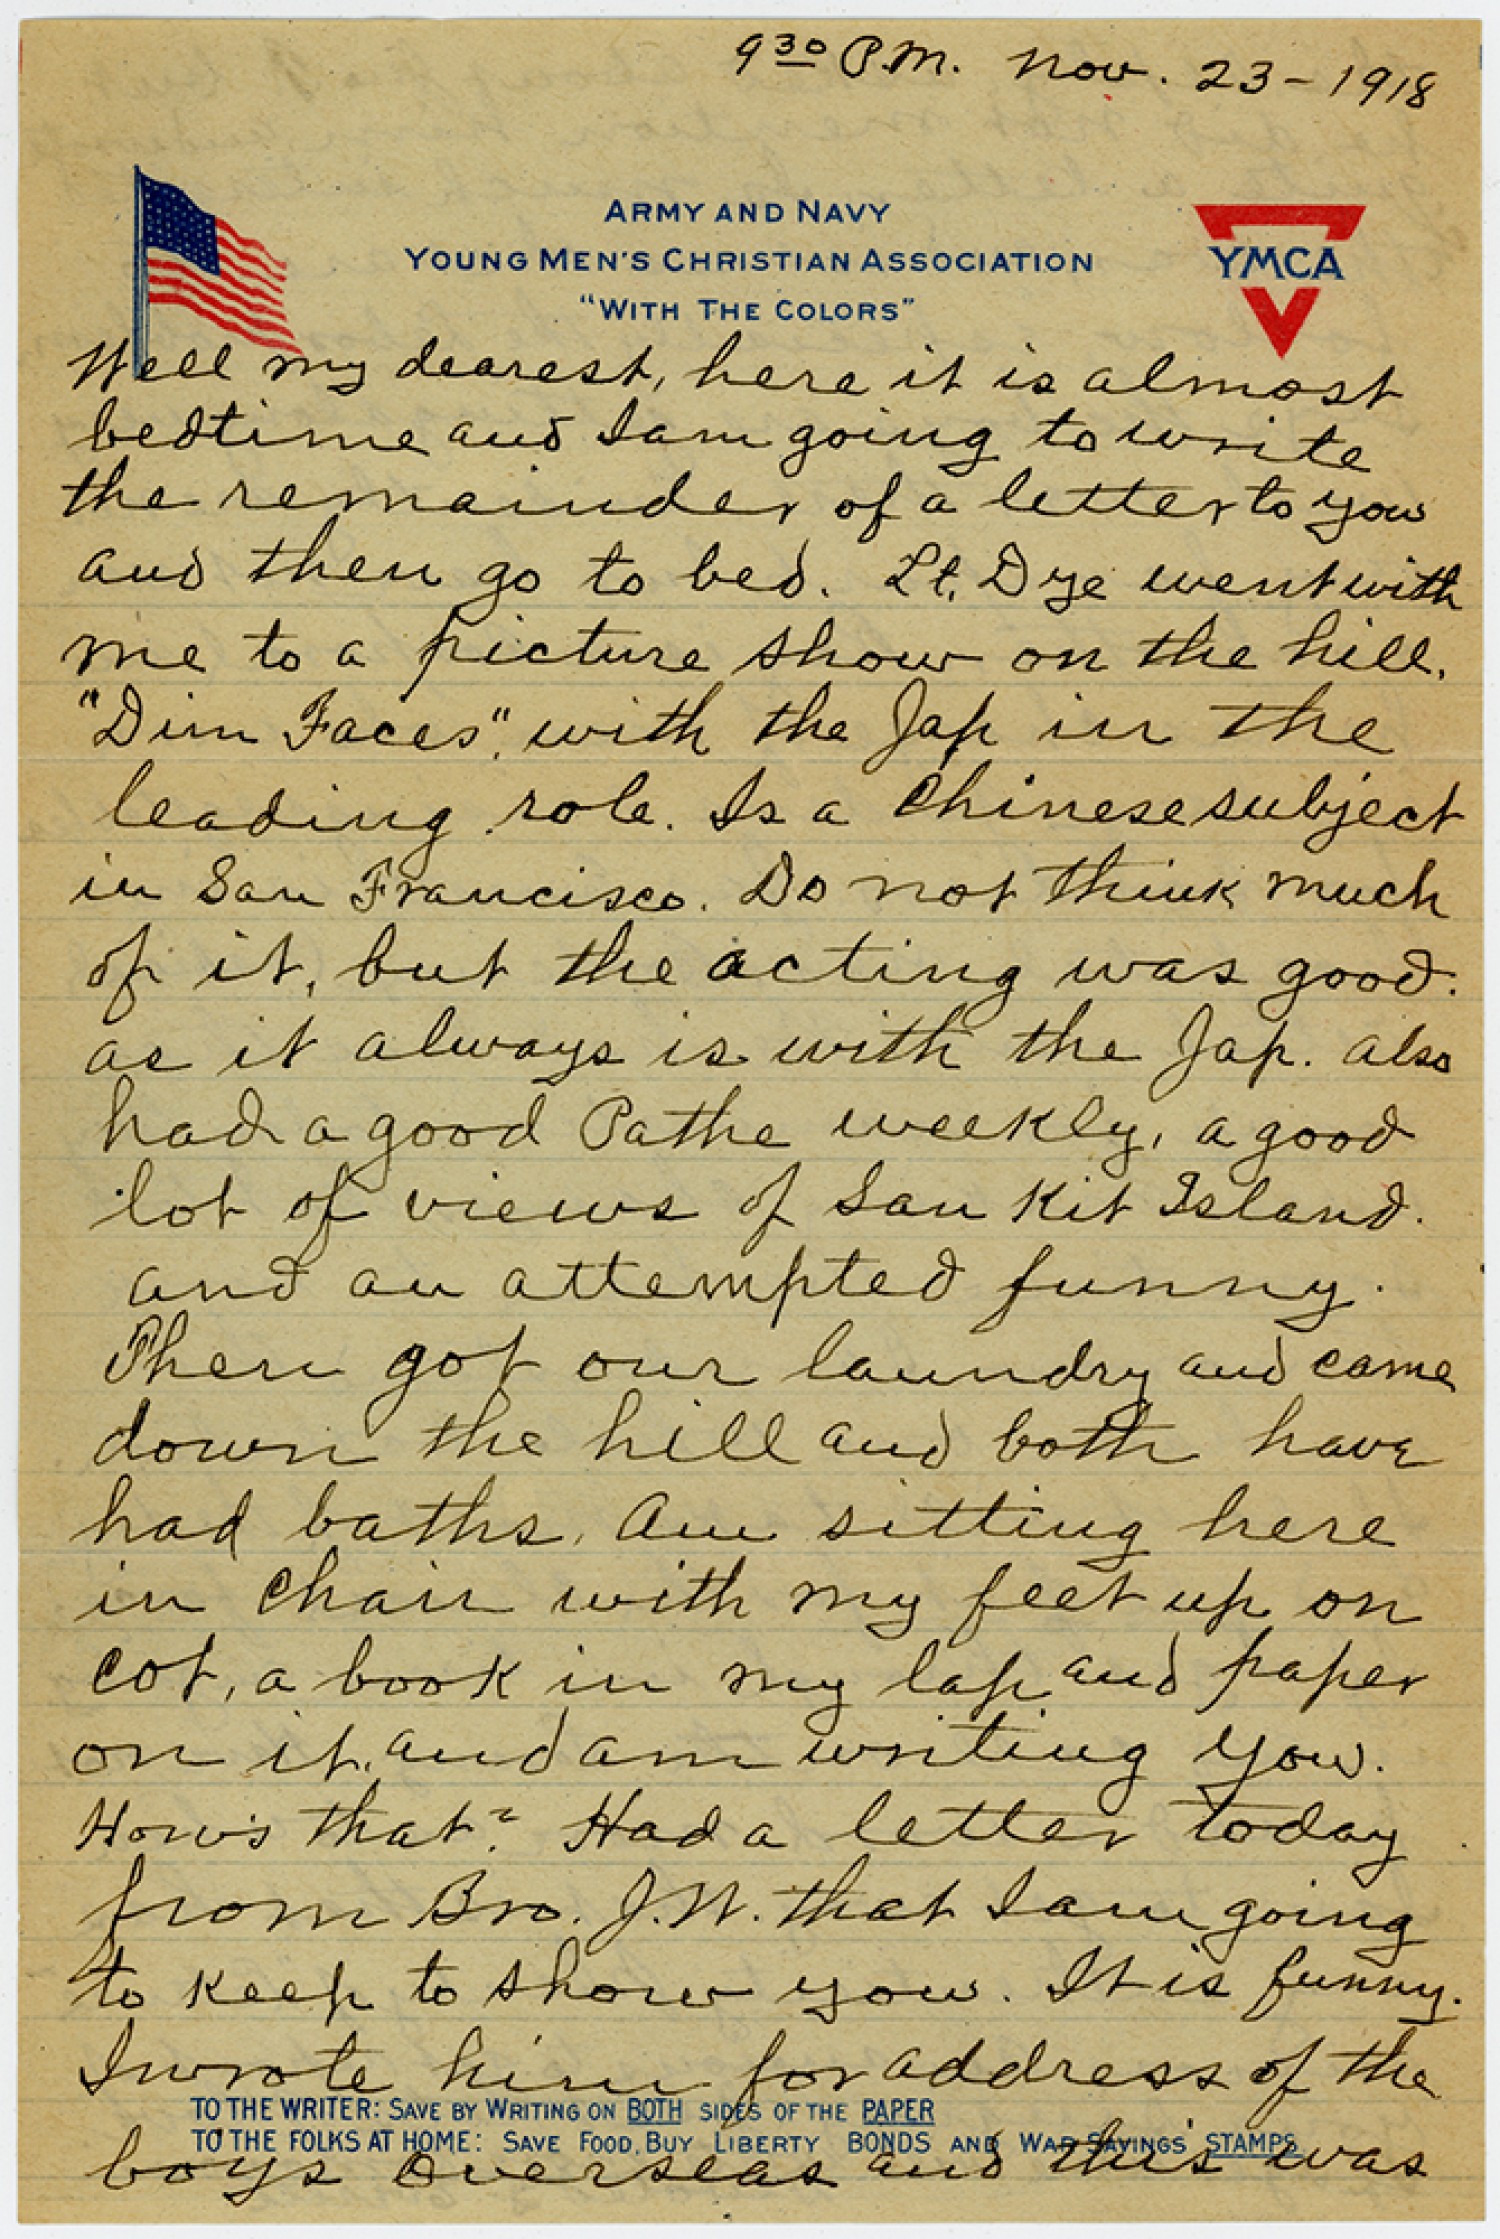 9³⁰ P.M. Nov. 23-1918
ARMY AND NAVY
YOUNG MEN'S CHRISTIAN ASSOCIATION
"WITH THE COLORS"
YMCA
Well my dearest, here it is almost
bedtime and I am going to write
the remainder of a letter to you
and then go to bed. Lt. Dye went with
me to a picture show on the hill.
"Dim Faces". with the Jap in the
leading role. Is a Chinese subject
in San Francisco. Do not think much
of it, but the acting was good.
as it always is with the Jap. Also
had a good Pathe weekly, a good
lot of views of San Kit Island.
and an attempted funny.
Then got our laundry and came
down the hill and both have
had baths. Am sitting here
in chair with my feet up on
cot, a book in my lap and paper
on it, and am writing you.
How's that? Had a letter today
from Bro. J.W. that I am going
to keep to show you. It is funny.
I wrote him for address of the
TO THE WRITER: SAVE BY WRITING ON BOTH SIDES OF THE PAPER
TO THE FOLKS AT HOME: SAVE FOOD, BUY LIBERTY BONDS AND WAR SAVINGS STAMPS
boys overseas and this was